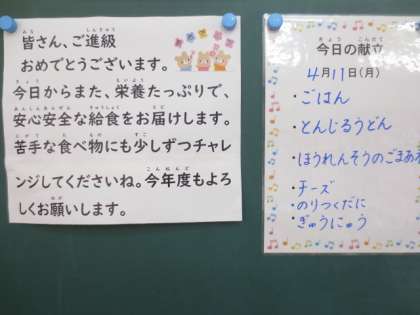 皆さん、ご進級
おめでとうございます。
今日からまた、栄養たっぷりで、
安心安全な給食をお届けします。
苦手な食べ物にも少しずつチャレ
ンジしてくださいね。今年度もよろ
しくお願いします。
今日の献立
4月11日(月)
・ごはん
・とんじるうどん
・ほうれんそうのごまあ
・チーズ
・のりつくだに
・ぎゅうにゅう